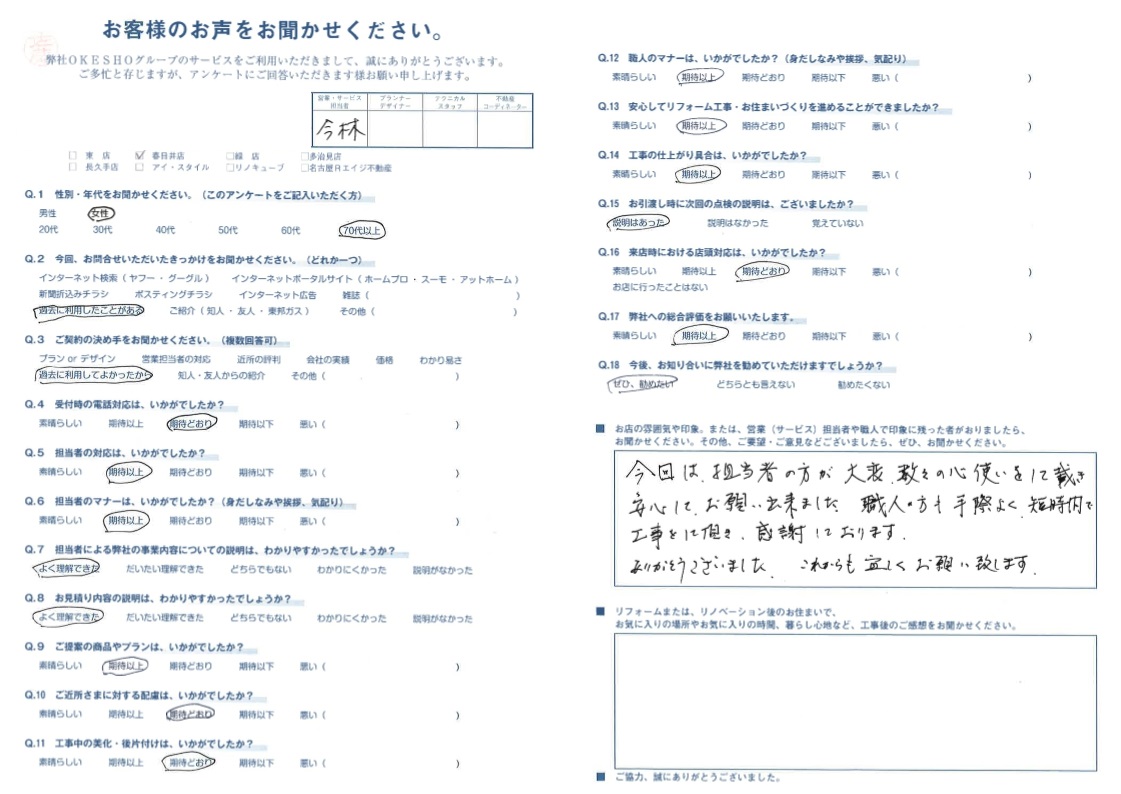 お客様のお声をお聞かせください。
弊社OKESHOグループのサービスをご利用いただきまして、誠にありがとうございます。
ご多忙と存じますが、アンケートにご回答いただきます様お願い申し上げます。
営業・サービス担当者 プランナーデザイナー テクニカルスタッフ 不動産コーディネーター
今林
□ 東 店 ☑ 春日井店 □緑 店 □多治見店
□ 長久手店 □ アイ・スタイル □リノキューブ □名古屋Rエイジ不動産
Q.1 性別・年代をお聞かせください。（このアンケートをご記入いただく方）
男性 女性
20代 30代 40代 50代 60代 70代以上
Q.2 今回、お問合せいただいたきっかけをお聞かせください。（どれか一つ）
インターネット検索（ ヤフー ・ グーグル ） インターネットポータルサイト（ ホームプロ ・ スーモ ・ アットホーム ）
新聞折込みチラシ ポスティングチラシ インターネット広告 雑誌（ ）
過去に利用したことがある ご紹介（ 知人 ・ 友人 ・ 東邦ガス ） その他（ ）
Q.3 ご契約の決め手をお聞かせください。（複数回答可）
プラン or デザイン 営業担当者の対応 近所の評判 会社の実績 価格 わかり易さ
過去に利用してよかったから 知人・友人からの紹介 その他（ ）
Q.4 受付時の電話対応は、いかがでしたか？
素晴らしい 期待以上 期待どおり 期待以下 悪い（ ）
Q.5 担当者の対応は、いかがでしたか？
素晴らしい 期待以上 期待どおり 期待以下 悪い（ ）
Q.6 担当者のマナーは、いかがでしたか？（身だしなみや挨拶、気配り）
素晴らしい 期待以上 期待どおり 期待以下 悪い（ ）
Q.7 担当者による弊社の事業内容についての説明は、わかりやすかったでしょうか？
よく理解できた だいたい理解できた どちらでもない わかりにくかった 説明がなかった
Q.8 お見積り内容の説明は、わかりやすかったでしょうか？
よく理解できた だいたい理解できた どちらでもない わかりにくかった 説明がなかった
Q.9 ご提案の商品やプランは、いかがでしたか？
素晴らしい 期待以上 期待どおり 期待以下 悪い（ ）
Q.10 ご近所さまに対する配慮は、いかがでしたか？
素晴らしい 期待以上 期待どおり 期待以下 悪い（ ）
Q.11 工事中の美化・後片付けは、いかがでしたか？
素晴らしい 期待以上 期待どおり 期待以下 悪い（ ）
Q.12 職人のマナーは、いかがでしたか？（身だしなみや挨拶、気配り）
素晴らしい 期待以上 期待どおり 期待以下 悪い（ ）
Q.13 安心してリフォーム工事・お住まいづくりを進めることができましたか？
素晴らしい 期待以上 期待どおり 期待以下 悪い（ ）
Q.14 工事の仕上がり具合は、いかがでしたか？
素晴らしい 期待以上 期待どおり 期待以下 悪い（ ）
Q.15 お引渡し時に次回の点検の説明は、ございましたか？
説明はあった 説明はなかった 覚えていない
Q.16 来店時における店頭対応は、いかがでしたか？
素晴らしい 期待以上 期待どおり 期待以下 悪い（ ）
お店に行ったことはない
Q.17 弊社への総合評価をお願いいたします。
素晴らしい 期待以上 期待どおり 期待以下 悪い（ ）
Q.18 今後、お知り合いに弊社を勧めていただけますでしょうか？
ぜひ、勧めたい どちらとも言えない 勧めたくない
■ お店の雰囲気や印象。または、営業（サービス）担当者や職人で印象に残った者がおりましたら、
お聞かせください。その他、ご要望・ご意見などございましたら、ぜひ、お聞かせください。
今回は、担当者の方が大変、数々の心使いをして戴き
安心して、お願い出来ました 職人の方も手際よく、短時間で
工事をして頂き、感謝しております。
ありがとうございました。 これからも宜しくお願い致します。
■ リフォームまたは、リノベーション後のお住まいで、
お気に入りの場所やお気に入りの時間、暮らし心地など、工事後のご感想をお聞かせください。
■ ご協力、誠にありがとうございました。